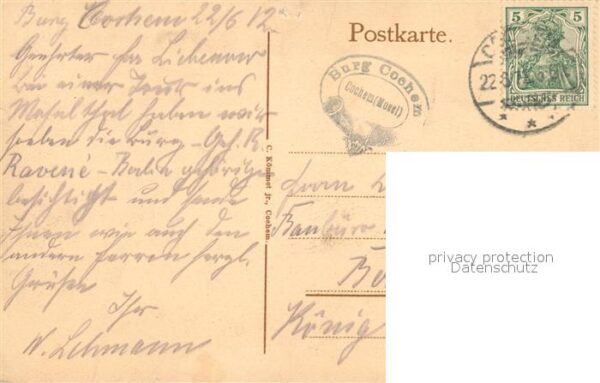 Burg Cochem 22/6 12
Geehrter Herr Lichenow
bei einer Tour ins
Moselthal haben wir
soeben die Burg - Geh. R.
Ravené - Berlin gehörige
besichtigt und sende
Ihnen wie auch den
andern Herren herzl.
Grüße
Ihr
W. Lehmann
Postkarte.
Burg Cochem
Cochem (Mosel)
5 5
DEUTSCHES REICH
C. Könnet jr., Cochem.
Herrn
Baubüro
König
privacy protection
Datenschutz